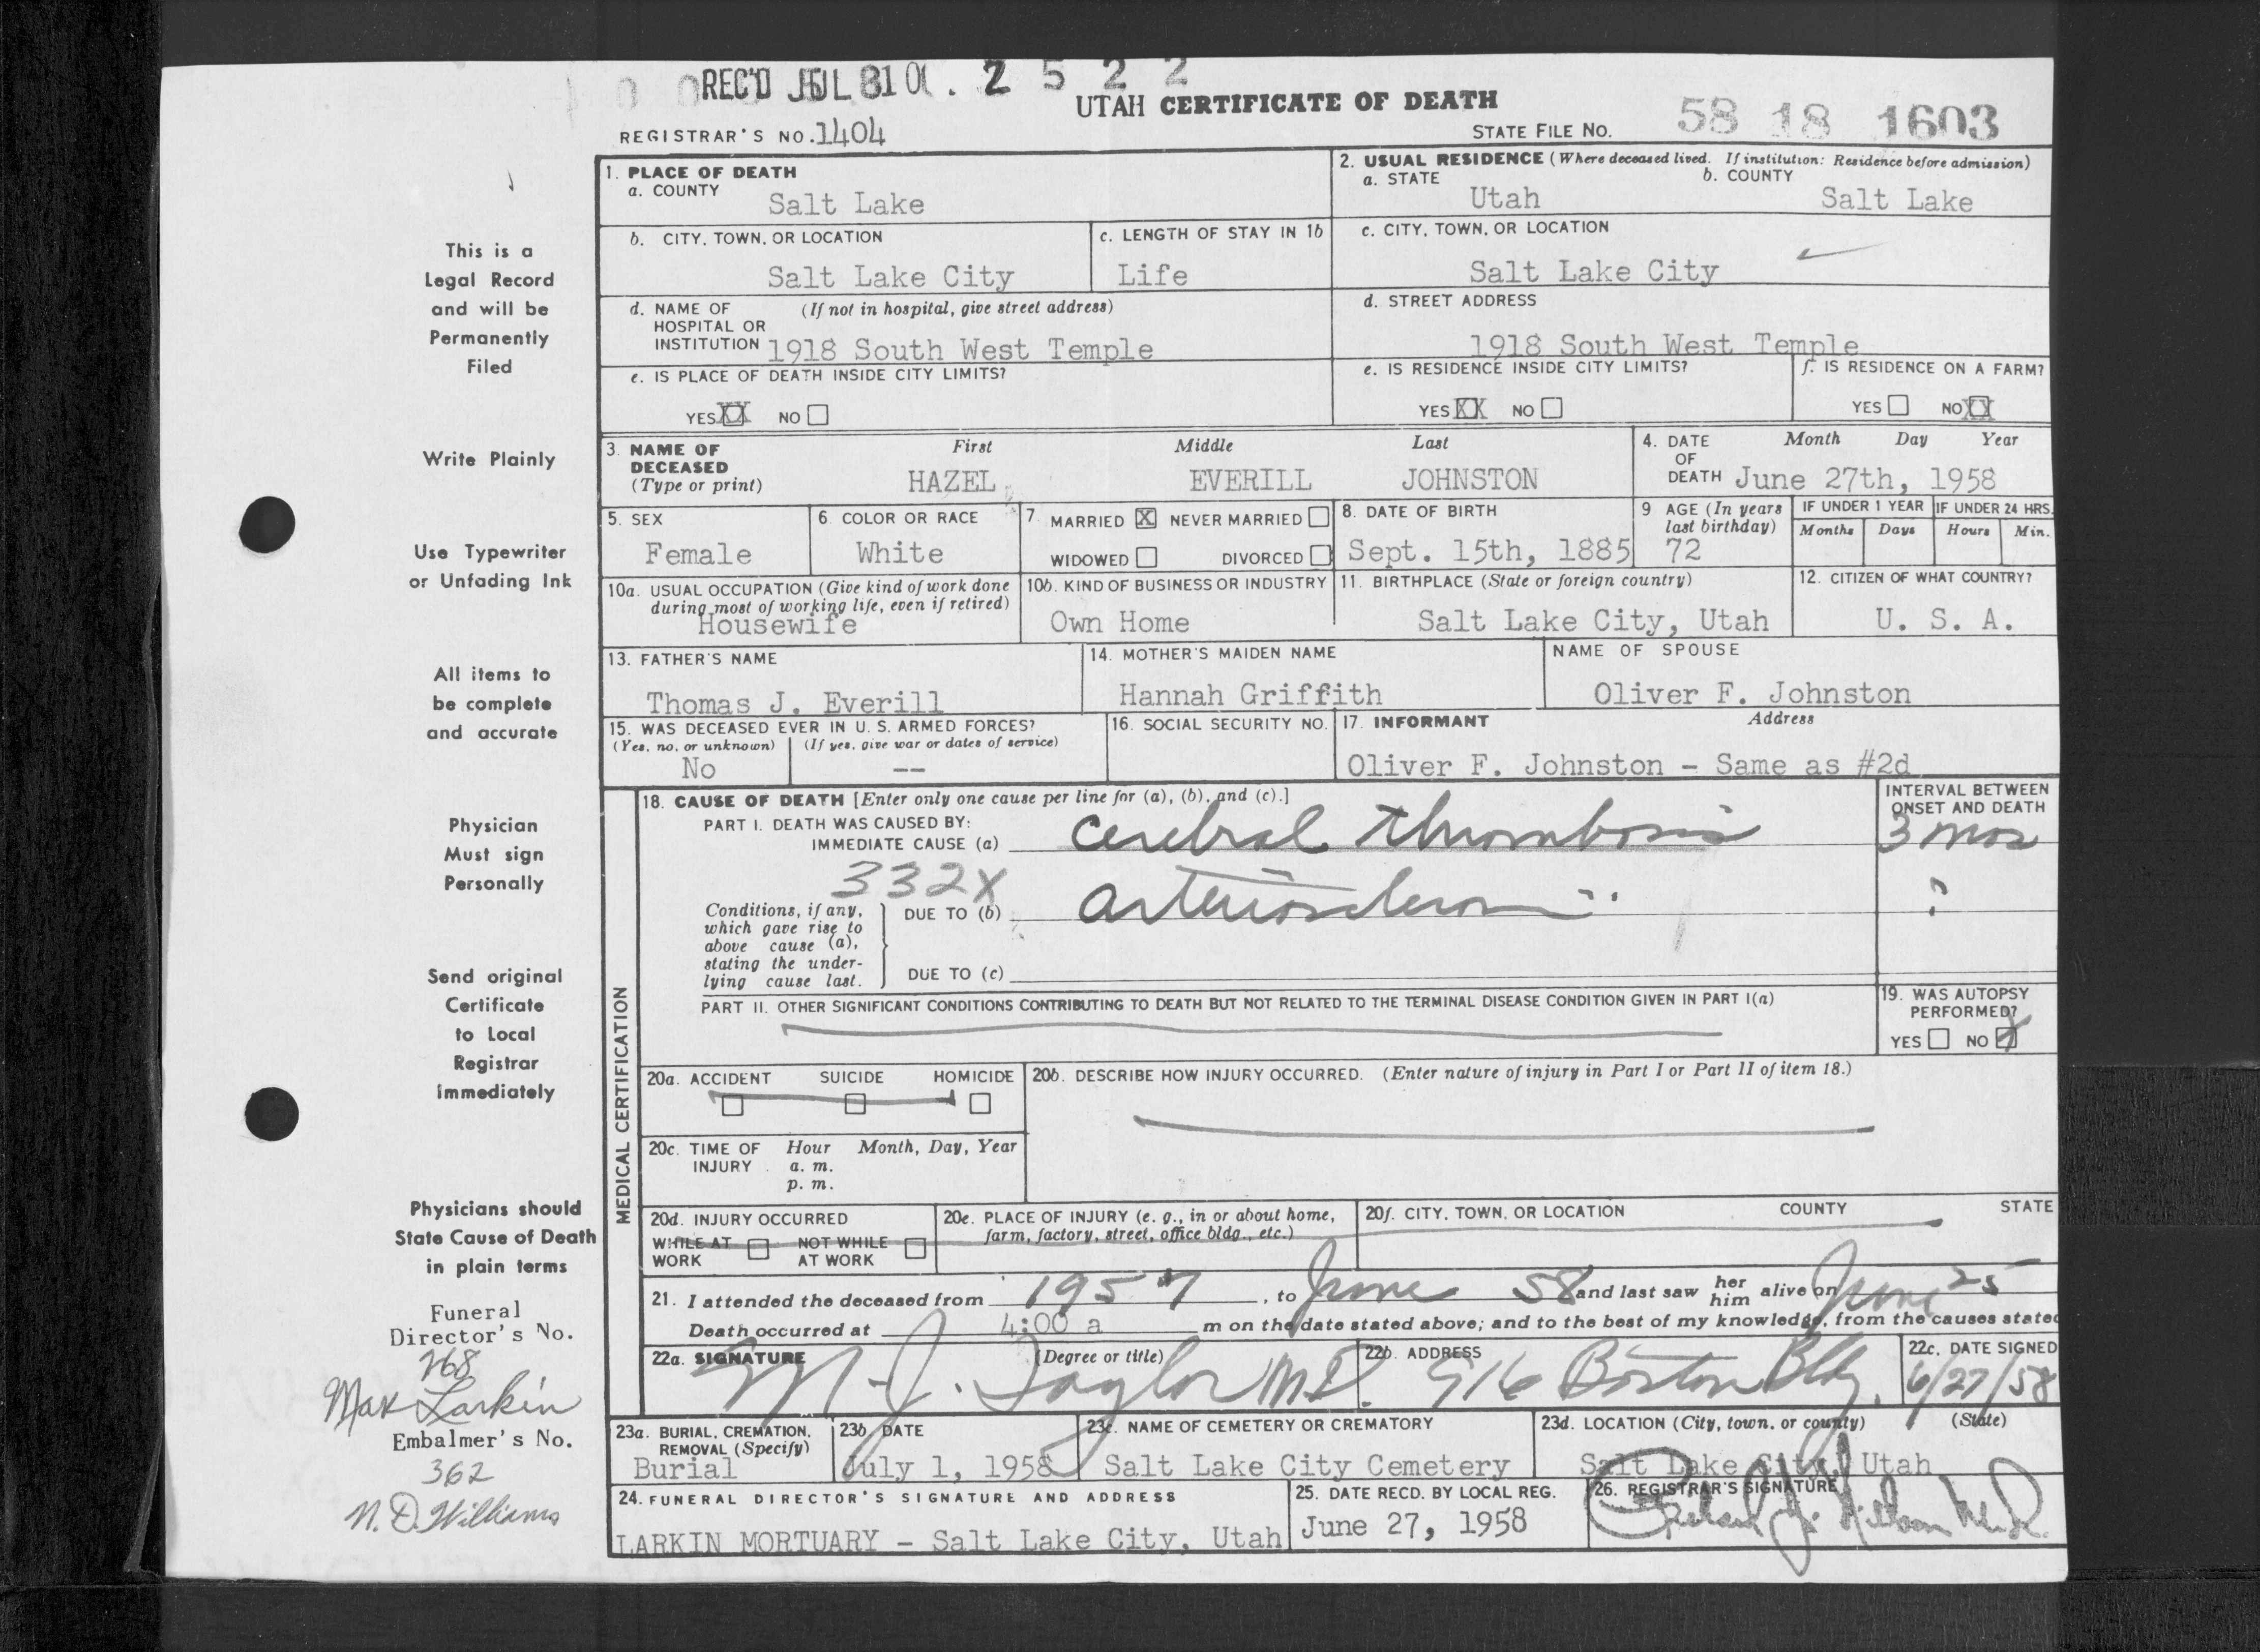 REC'D JUL 31 2522
UTAH CERTIFICATE OF DEATH
REGISTRAR'S NO. 1404
STATE FILE NO. 58 18 1603
1. PLACE OF DEATH
a. COUNTY
Salt Lake
2. USUAL RESIDENCE (Where deceased lived. If institution: Residence before admission)
a. STATE
Utah
b. COUNTY
Salt Lake
b. CITY, TOWN, OR LOCATION
Salt Lake City
c. LENGTH OF STAY IN 1b
Life
c. CITY, TOWN, OR LOCATION
Salt Lake City
d. NAME OF HOSPITAL OR INSTITUTION (If not in hospital, give street address)
1918 South West Temple
d. STREET ADDRESS
1918 South West Temple
e. IS PLACE OF DEATH INSIDE CITY LIMITS?
YES XX NO
e. IS RESIDENCE INSIDE CITY LIMITS?
YES XX NO
f. IS RESIDENCE ON A FARM?
YES NO XX
3. NAME OF DECEASED (Type or print)
First Middle Last
HAZEL EVERILL JOHNSTON
4. DATE OF DEATH
Month Day Year
June 27th, 1958
5. SEX
Female
6. COLOR OR RACE
White
7. MARRIED X NEVER MARRIED
WIDOWED DIVORCED
8. DATE OF BIRTH
Sept. 15th, 1885
9 AGE (In years last birthday)
72
IF UNDER 1 YEAR
Months Days
IF UNDER 24 HRS.
Hours Min.
10a. USUAL OCCUPATION (Give kind of work done during most of working life, even if retired)
Housewife
10b. KIND OF BUSINESS OR INDUSTRY
Own Home
11. BIRTHPLACE (State or foreign country)
Salt Lake City, Utah
12. CITIZEN OF WHAT COUNTRY?
U. S. A.
13. FATHER'S NAME
Thomas J. Everill
14. MOTHER'S MAIDEN NAME
Hannah Griffith
NAME OF SPOUSE
Oliver F. Johnston
15. WAS DECEASED EVER IN U. S. ARMED FORCES?
(Yes, no, or unknown) (If yes, give war or dates of service)
No --
16. SOCIAL SECURITY NO.
17. INFORMANT Address
Oliver F. Johnston - Same as #2d
MEDICAL CERTIFICATION
18. CAUSE OF DEATH [Enter only one cause per line for (a), (b), and (c).]
PART I. DEATH WAS CAUSED BY:
IMMEDIATE CAUSE (a) cerebral thrombosis
INTERVAL BETWEEN ONSET AND DEATH
3 mos
332X
Conditions, if any, which gave rise to above cause (a), stating the underlying cause last.
DUE TO (b) arteriosclerosis
?
DUE TO (c)
PART II. OTHER SIGNIFICANT CONDITIONS CONTRIBUTING TO DEATH BUT NOT RELATED TO THE TERMINAL DISEASE CONDITION GIVEN IN PART I(a)
19. WAS AUTOPSY PERFORMED?
YES NO X
20a. ACCIDENT SUICIDE HOMICIDE
20b. DESCRIBE HOW INJURY OCCURRED. (Enter nature of injury in Part I or Part II of item 18.)
20c. TIME OF INJURY Hour Month, Day, Year
a. m.
p. m.
20d. INJURY OCCURRED
WHILE AT WORK NOT WHILE AT WORK
20e. PLACE OF INJURY (e. g., in or about home, farm, factory, street, office bldg., etc.)
20f. CITY, TOWN, OR LOCATION COUNTY STATE
21. I attended the deceased from 1957, to June 58 and last saw her him alive on June 25
Death occurred at 4:00 a m on the date stated above; and to the best of my knowledge, from the causes stated
22a. SIGNATURE (Degree or title)
M. J. Taylor MD.
22b. ADDRESS
916 Boston Bldg.
22c. DATE SIGNED
6/27/58
23a. BURIAL, CREMATION, REMOVAL (Specify)
Burial
23b DATE
July 1, 1958
23c. NAME OF CEMETERY OR CREMATORY
Salt Lake City Cemetery
23d. LOCATION (City, town, or county) (State)
Salt Lake City, Utah
24. FUNERAL DIRECTOR'S SIGNATURE AND ADDRESS
LARKIN MORTUARY - Salt Lake City, Utah
25. DATE RECD. BY LOCAL REG.
June 27, 1958
26. REGISTRAR'S SIGNATURE
This is a
Legal Record
and will be
Permanently
Filed
Write Plainly
Use Typewriter
or Unfading Ink
All items to
be complete
and accurate
Physician
Must sign
Personally
Send original
Certificate
to Local
Registrar
immediately
Physicians should
State Cause of Death
in plain terms
Funeral
Director's No.
268
Max Larkin
Embalmer's No.
362
N. D. Williams